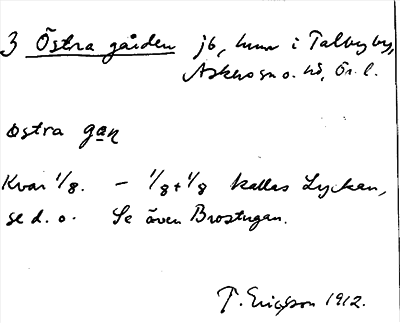 3 Östra gården jb, hmn i Talbyby,
Askers sn o. hd, Ör. l.
östra gaɳ
Kvar 1/8. – 1/8 + 1/8 kallas Lyckan,
se d. o. Se även Brostugan.
T. Ericsson 1912.